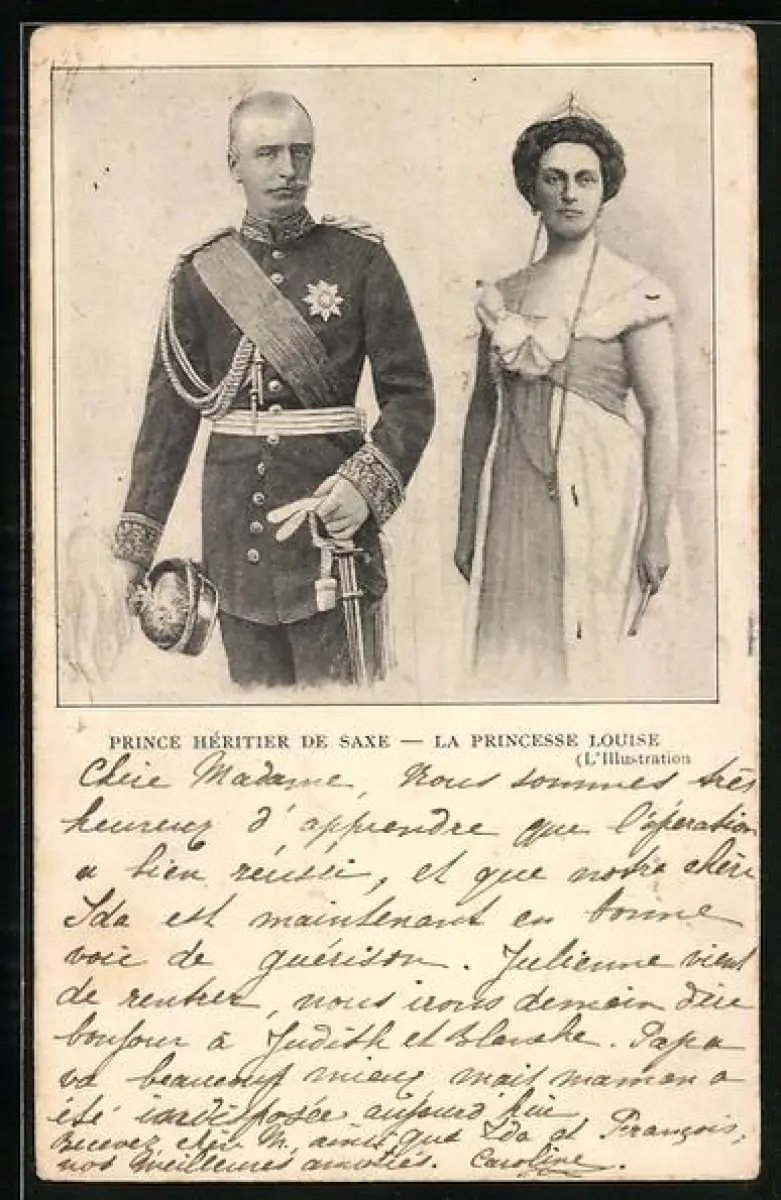 PRINCE HÉRITIER DE SAXE — LA PRINCESSE LOUISE
(L'Illustration
Chère Madame, Nous sommes très
heureux d'apprendre que l'opération
a bien réussi, et que notre chère
Ida est maintenant en bonne
voie de guérison. Julienne vient
de rentrer, nous irons demain dire
bonjour à Judith et Blanche. Papa
va beaucoup mieux mais maman a
été indisposée aujourd'hui.
Recevez chère M, ainsi que Ida et François,
nos meilleures amitiés. Caroline.